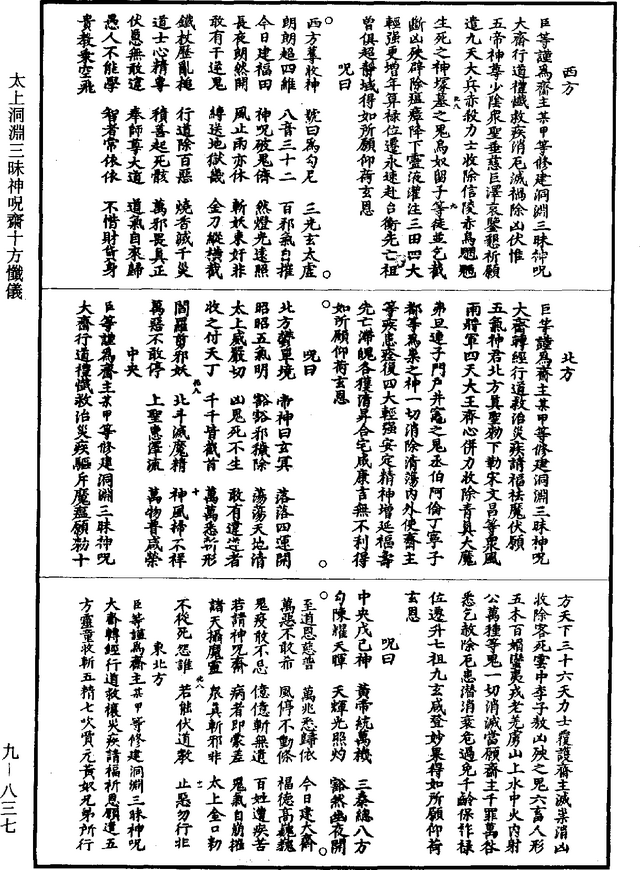 西方
臣等謹為齋主某甲等修建洞淵三昧神呪
大齋行道禮懺救疾消厄滅禍除凶伏惟
五帝神尊少陰眾聖垂慈巨澤哀鑒懇祈願
遣九天大兵赤殺力士收除信陵赤烏魍魎
生死之神塚墓之鬼烏奴留子等徒並乞截
斷凶殃辟除瘟瘴降下靈液灌注三田四大
輕強更增年算祿位遷永速赴台衡先亡祖
曾俱超靜域得如所願仰荷玄恩
呪曰
西方尊收神 號曰為勾尼 三光玄太虛
朗朗超四維 八音三十二 百邪氣自摧
今日建福田 神呪破鬼儔 然燈光遠照
長夜朗然開 風止雨亦休 斬妖來奸非
敢有千逆鬼 縛送地獄幾 金刀縱橫截
鐵杖歷亂搥 行道除百惡 燒香滅千災
道士心精專 積善起死骸 萬邪畏真正
伏惡無敢違 奉師尊大道 道氣自來歸
愚人不能學 智者常依依 不惜財貨身
貴教乘空飛
北方
臣等謹為齋主某甲等修建洞淵三昧神呪
大齋轉經行道救治災疾請福祛魔伏願
五氣神君北方真聖勑下勒宋文昌等眾風
雨將軍四天大王齊心併力收除青真大魔
弟旦連子門戶井竈之鬼丞伯阿倫丁寧子
都等萬眾之神一切消除清蕩內外使齋主
等疾患痊復四大輕強安定精神增延福壽
先亡滯魄各獲清昇合宅咸康吉無不利得
如所願仰荷玄恩
呪曰
北方鬱單境 帝神曰玄冥 落落四運開
昭昭五氣明 豁豁邪穢除 蕩蕩天地清
太上威嚴切 凶鬼死不生 敢有違逆者
收之付天丁 千千皆截首 萬萬悉斬形
閻羅剪邪妖 北斗滅魔精 神風掃不祥
萬惡不敢停 上聖惠澤流 萬物普咸榮
中央
臣等謹為齋主某甲等修建洞淵三昧神呪
大齋行道禮懺救治災疾驅斥魔瘟願勑十
方天下三十六天力士覆護齋主滅祟消凶
收除客死雲中李子敖凶殃之鬼六畜人形
五木百媚蠻夷戎老羌虜山上水中火內射
公萬種等鬼一切消滅當願齋主千罪萬咎
悉乞赦除厄患潛消衰危過免千齡保祚祿
位遷升七祖九玄咸登妙果得如所願仰荷
玄恩
呪曰
中央戊己神 黃帝統萬機 三秦總八方
勾陳耀天暉 天輝光照灼 豁然幽夜開
至道恩慈普 萬兆悉歸依 今日建大齋
萬惡不敢希 風停不動條 福德高巍巍
鬼疫敢不忌 億億斬無遺 百姓遭疾苦
若請神呪齋 病者即蒙差 鬼氣自崩摧
諸天攝魔靈 眾真斬邪非 太上金口勑
不從死怨誰 若能伏道教 止惡勿行非
東北方
臣等謹為齋主某甲等修建洞淵三昧神呪
大齋轉經行道救禳災疾請福祈恩願遣五
方靈童收斬五精七吹賀元黃奴兄弟所行
太上洞淵三昧神呪齋十方懺儀
九—八三七